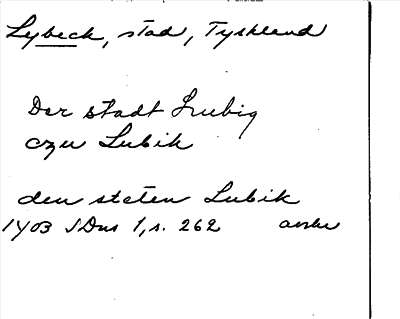 Lybeck, stad, Tyskland
Der stadt Lubig
czu Lubik
den steten Lubik
1403 SDns 1, s. 262 avskr